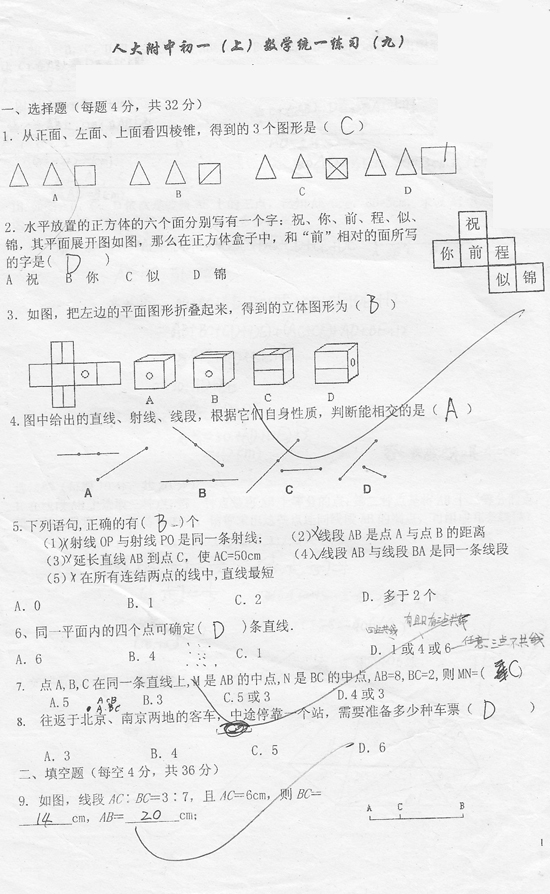 人大附中初一（上）数学统一练习（九）
一、选择题（每题4分，共32分）
1. 从正面、左面、上面看四棱锥，得到的3个图形是（ C ）
A B C D
2. 水平放置的正方体的六个面分别写有一个字：祝、你、前、程、似、
锦，其平面展开图如图，那么在正方体盒子中，和“前”相对的面所写
的字是( D )
A 祝 B 你 C 似 D 锦
祝
你 前 程
似 锦
3. 如图，把左边的平面图形折叠起来，得到的立体图形为（ B ）
A B C D
4.图中给出的直线、射线、线段，根据它们自身性质，判断能相交的是（ A ）
A B C D
5.下列语句,正确的有( B )个
(1)×射线OP与射线PO是同一条射线； (2)×线段AB是点A与点B的距离
(3)×延长直线AB到点C，使AC=50cm (4)√线段AB与线段BA是同一条线段
(5)×在所有连结两点的线中,直线最短
A. 0 B. 1 C. 2 D. 多于2个
6、同一平面内的四个点可确定( D )条直线.
A. 6 B. 4 C. 1 D. 1或4或6 任意三点不共线
7. 点A,B,C在同一条直线上,M是AB的中点,N是BC的中点,AB=8,BC=2,则MN=( C )
A.5 B.3 C.5或3 D.4或3
8. 往返于北京、南京两地的客车，中途停靠一个站，需要准备多少种车票（ D ）
A. 3 B. 4 C. 5 D. 6
二、填空题（每空4分，共36分）
9. 如图，线段AC：BC=3：7，且AC=6cm，则BC=
14 cm，AB= 20 cm；
A C B
1